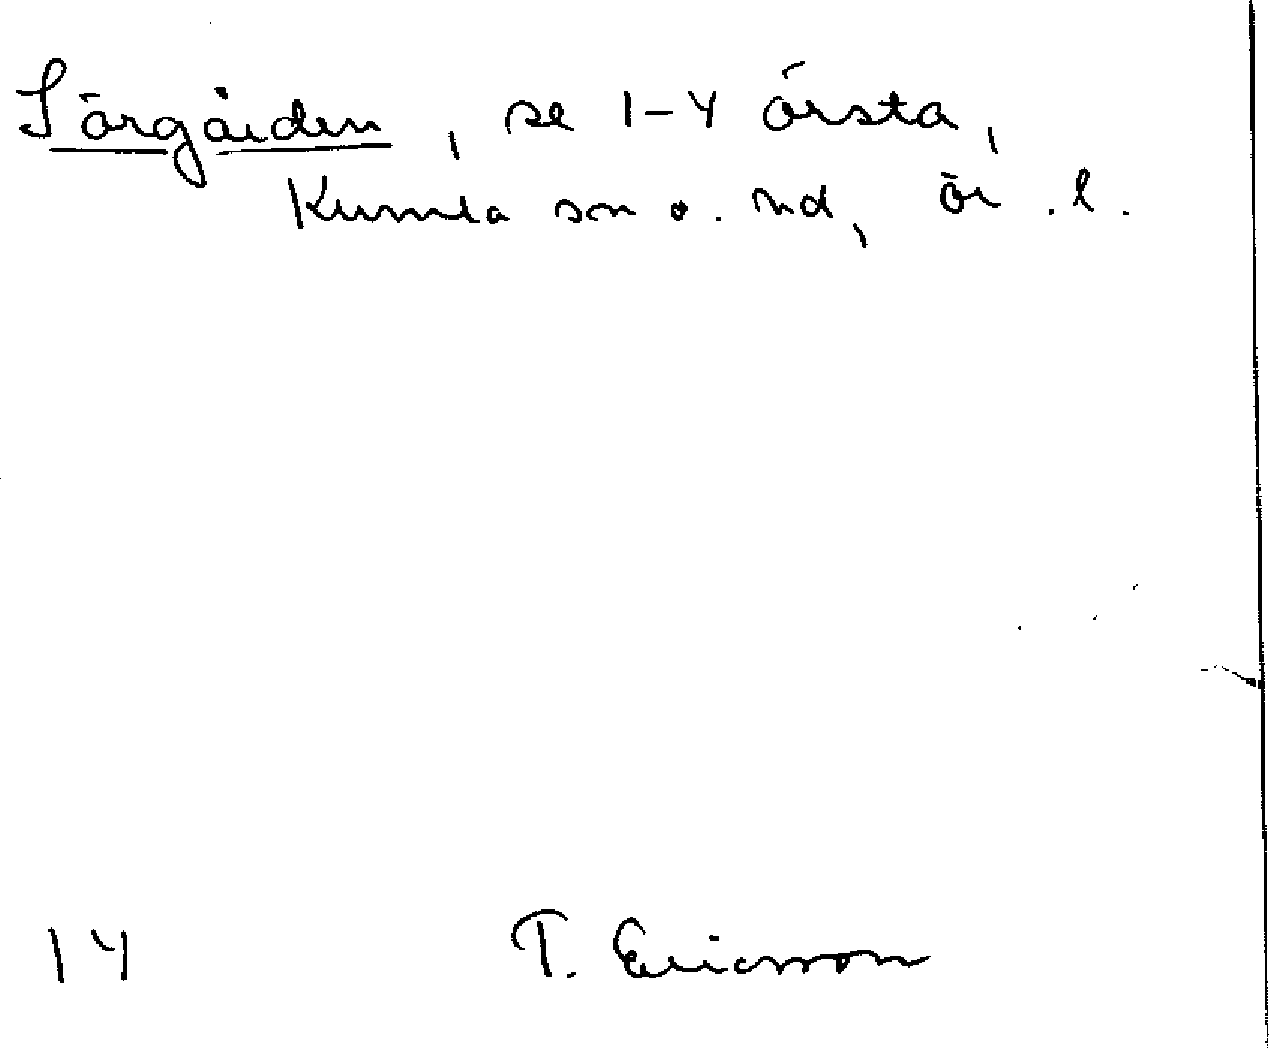 Sörgården, se 1-4 Örsta,
Kumla sn o. hd, Ör. l.
14 T. Ericsson